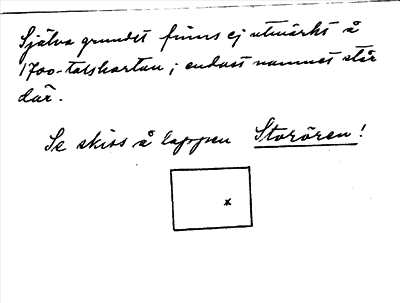 Själva grundet finns ej utmärkt å
1700-talskartan; endast namnet står
där.
Se skiss å lappen Storören!
x